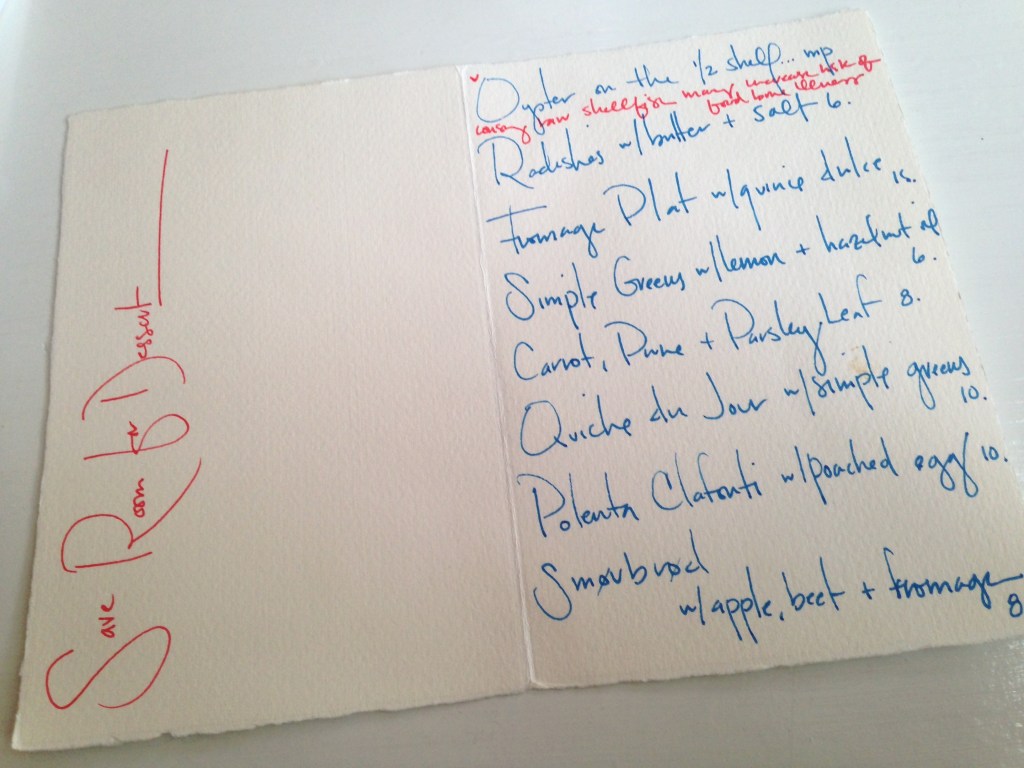 Save Room for Dessert
Oyster on the 1/2 shelf... mp
raw shellfish many increase risk of
food borne illness
Radishes w/butter + salt 6.
Fromage Plat w/quince dulce
Simple Greens w/lemon + hazelnut oil
6.
Carrot, Prune + Parsley Leaf 8.
Quiche du Jour w/simple greens
10.
Polenta Clafonti w/poached egg 10.
Smørbrød
w/apple, beet + fromage
8